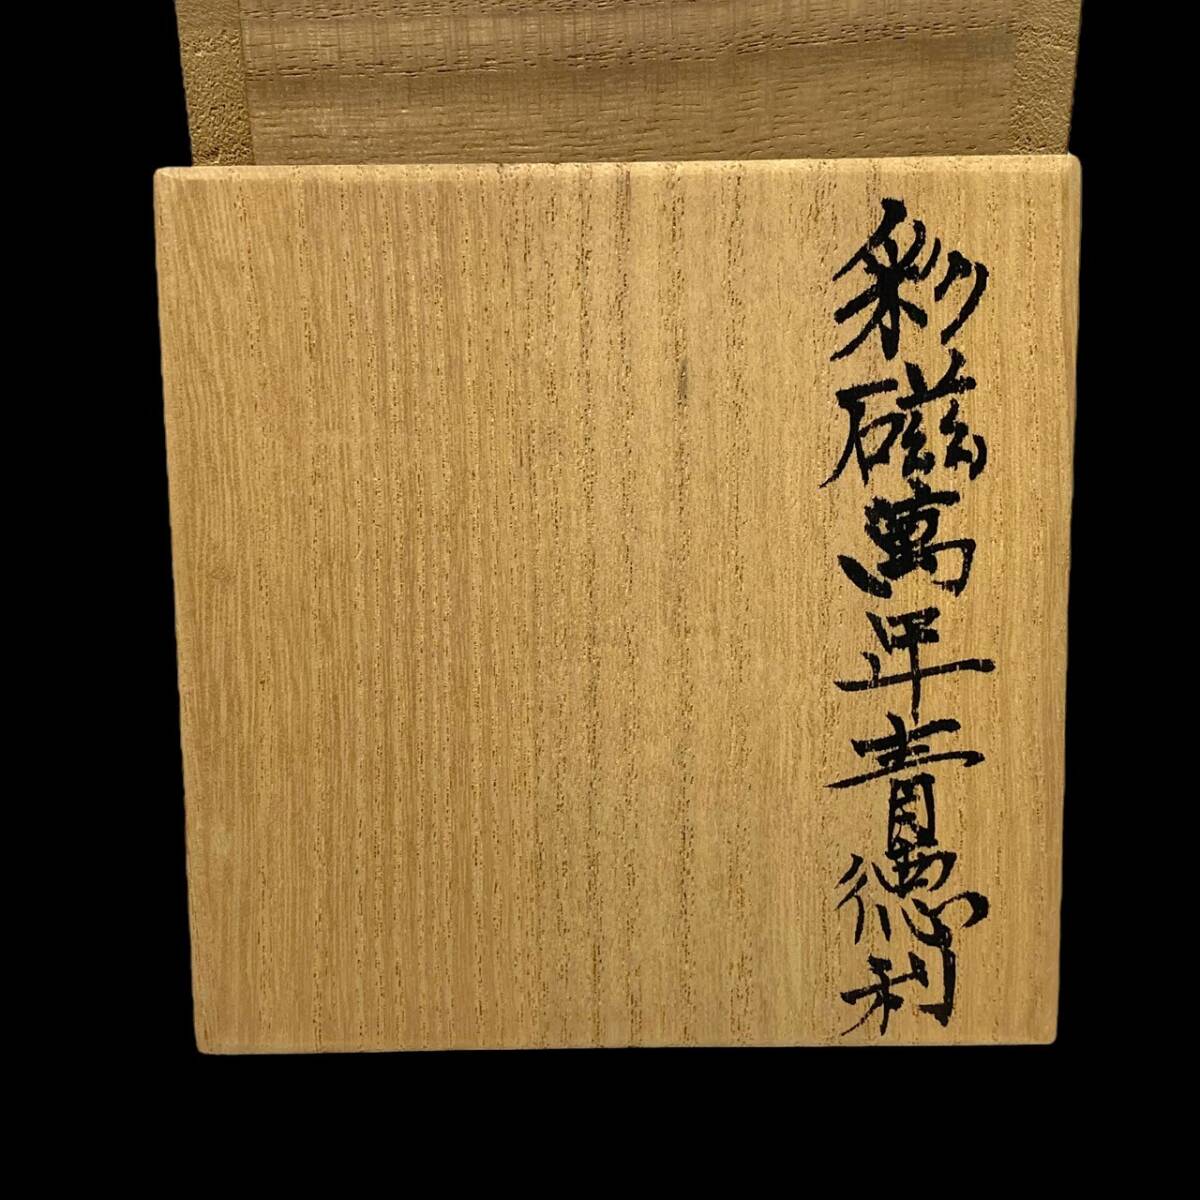 彩磁萬年青德利